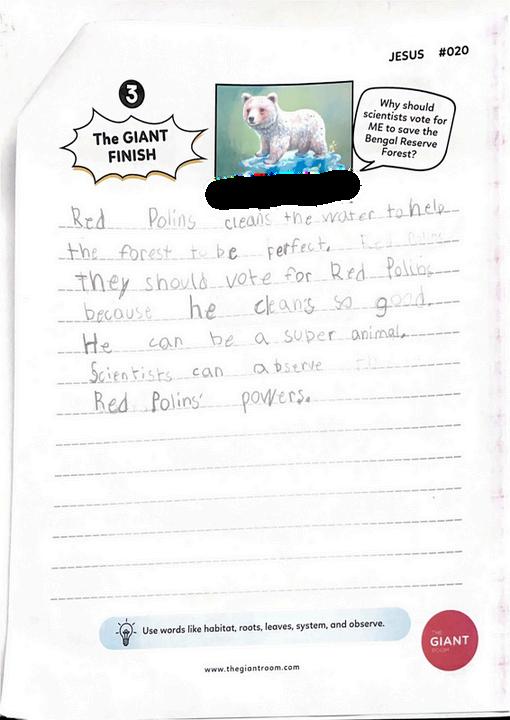 JESUS #020
3
The GIANT
FINISH
Why should
scientists vote for
ME to save the
Bengal Reserve
Forest?
Red Polins cleans the water to help
the forest to be perfect.
They should vote for Red Polins
because he cleans so good.
He can be a super animal.
Scientists can abserve
Red Polins' powers.
Use words like habitat, roots, leaves, system, and observe.
THE
GIANT
ROOM
www.thegiantroom.com